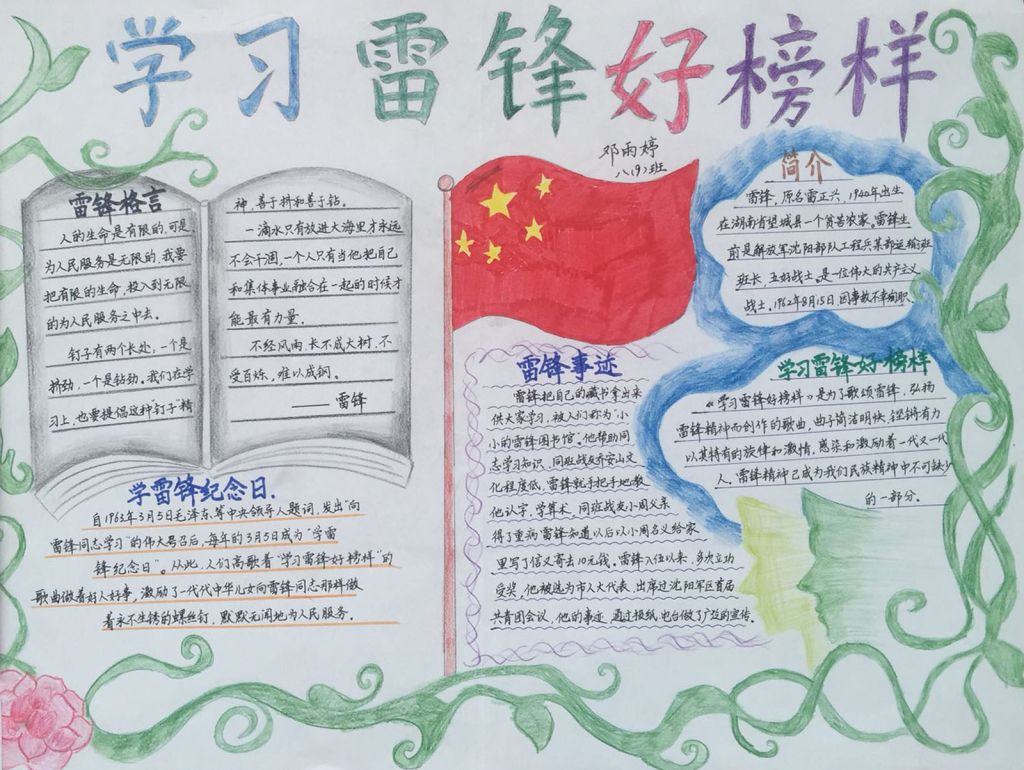 学习雷锋好榜样
邓雨婷
八(9)班
雷锋格言
人的生命是有限的,可是
为人民服务是无限的,我要
把有限的生命,投入到无限
的为人民服务之中去。
钉子有两个长处,一个是
挤劲,一个是钻劲。我们在学
习上,也要提倡这种"钉子"精
神,善于挤和善于钻。
一滴水只有放进大海里才永远
不会干涸,一个人只有当他把自己
和集体事业融合在一起的时候才
能最有力量。
不经风雨,长不成大树,不
受百炼,难以成钢。
——雷锋
学雷锋纪念日.
自1963年3月5日毛泽东等中央领导人题词,发出"向
雷锋同志学习"的伟大号召后,每年的3月5日成为"学雷
锋纪念日"。从此,人们高歌着"学习雷锋好榜样"的
歌曲做着好人好事,激励了一代代中华儿女向雷锋同志那样做
着永不生锈的螺丝钉,默默无闻地为人民服务。
简介
雷锋,原名雷正兴,1940年出生
在湖南省望城县一个贫苦农家。雷锋生
前是解放军沈阳部队工程兵某部运输班
班长,五好战士,是一位伟大的共产主义
战士。1962年8月15日,因事故不幸殉职。
雷锋事迹
雷锋把自己的藏书拿出来
供大家学习,被人们称为"小
小的雷锋图书馆"。他帮助同
志学习知识,同班战友乔安山文
化程度低,雷锋就手把手地教
他认字,学算术。同班战友小周父亲
得了重病雷锋知道以后以小周名义给家
里写了信又寄去10元钱。雷锋入伍以来,多次立功
受奖,他被选为市人大代表,出席过沈阳军区首届
共青团会议,他的事迹,通过报纸,电台做了广泛的宣传。
学习雷锋好榜样
《学习雷锋好榜样》是为了歌颂雷锋,弘扬
雷锋精神而创作的歌曲,曲子简洁明快,铿锵有力
以其特有的旋律和激情,感染和激励着一代又一代
人,雷锋精神已成为我们民族精神中不可缺少
的一部分。